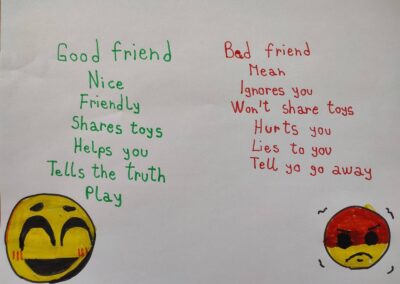 Good friend
Nice
Friendly
Shares toys
Helps you
Tells the truth
Play
Bad friend
Mean
Ignores you
Won't share toys
Hurts you
Lies to you
Tell yo go away